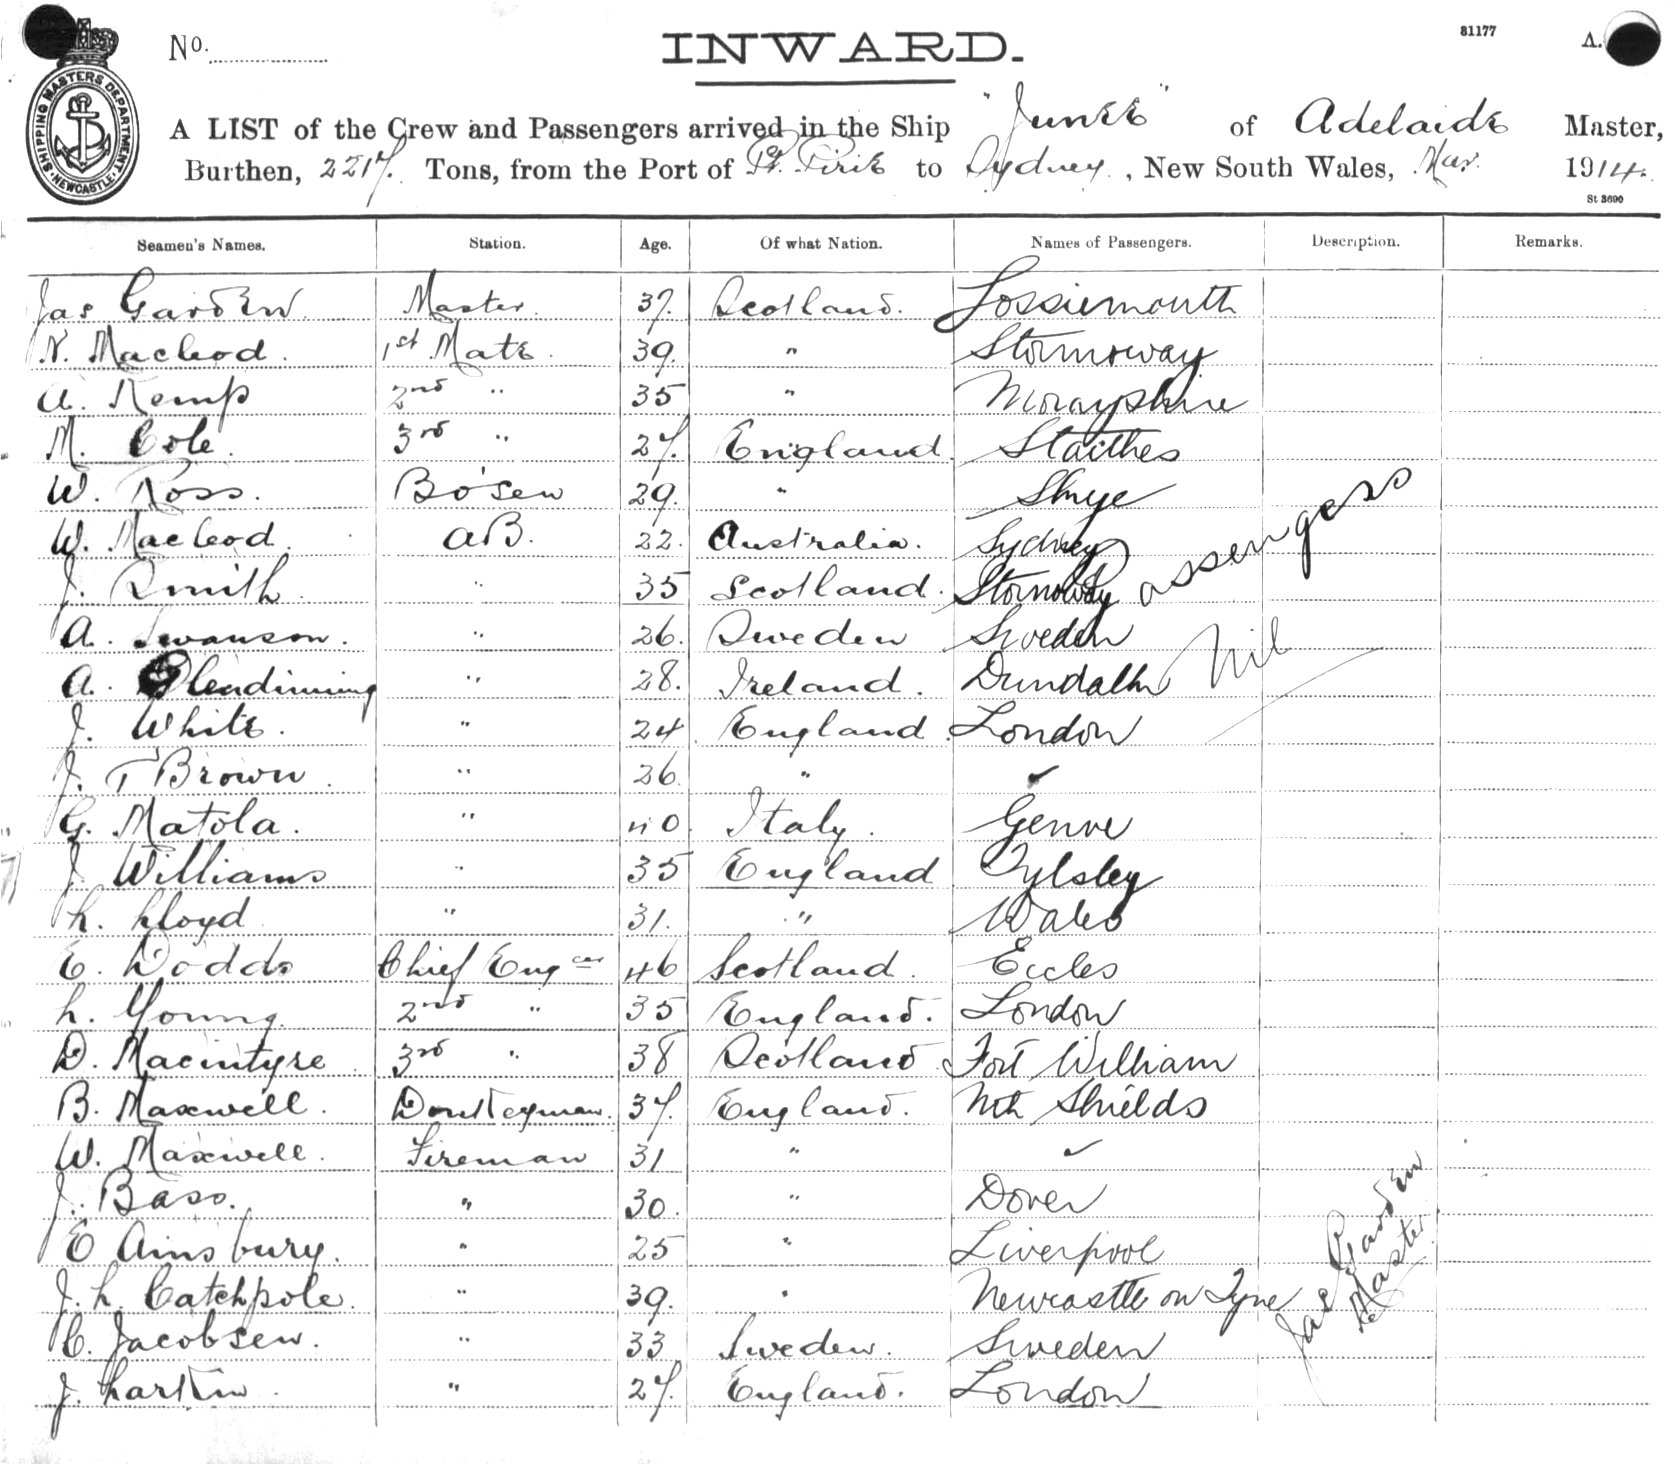 No.
INWARD.
81177
A.
SHIPPING MASTERS DEPARTMENT. NEWCASTLE.
A LIST of the Crew and Passengers arrived in the Ship "Junee" of Adelaide Master,
Burthen, 2217. Tons, from the Port of Pt. Pirie to Sydney, New South Wales, Mar. 1914.
St 3690
Seamen's Names. Station. Age. Of what Nation. Names of Passengers. Description. Remarks.
Jas Garden Master. 37. Scotland. Lossiemouth
N. Macleod. 1st Mate. 39. " Stornoway
A. Kemp 2nd " 35 " Morayshire
M. Cole. 3rd " 27. England. Staithes
W. Ross. Bo'sen 29. " Skye
W. Macleod. AB. 22. Australia. Sydney
J. Smith. " 35 Scotland. Stornoway
A. Swanson. " 26. Sweden Sweden
A. Glendinning " 28. Ireland. Dundalk
Nil Passengers
J. White. " 24 England. London
J. T Brown. " 26. " "
G. Matola. " 40. Italy.
J. Williams " 35 England Tylsley
L. Lloyd " 31. " Wales
E. Dodds Chief Engeer 46 Scotland. Eccles
L. Young. 2nd " 35 England. London
D. Macintyre 3rd " 38 Scotland Fort William
B. Maxwell. Donkeyman. 37. England. Nth Shields
W. Maxwell. Fireman 31 " "
J. Bass. " 30. " Dover
E Ainsbury. " 25 " Liverpool
J. L. Catchpole. " 39. " Newcastle on Tyne
C. Jacobsen. " 33 Sweden. Sweden
J. Larkin. " 27. England. London
Jas Garden
Master.